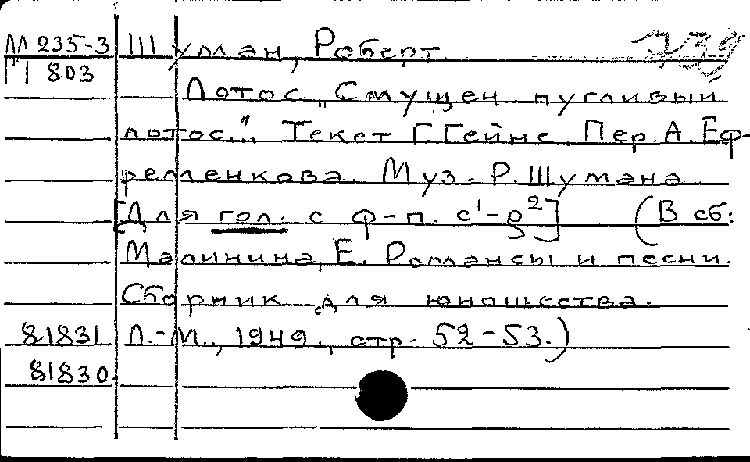 М 235-3 Шуман, Роберт 739
803
Лотос „Смущен пугливый
лотос..." Текст Г. Гейне. Пер А. Еф-
ременкова. Муз. Р. Шумана
[Для гол. с ф-п. c¹-g²] (В сб:
Малинина, Е. Романсы и песни.
Сборник для юношества.
81831 Л.-М., 1949., стр. 52-53.)
81830